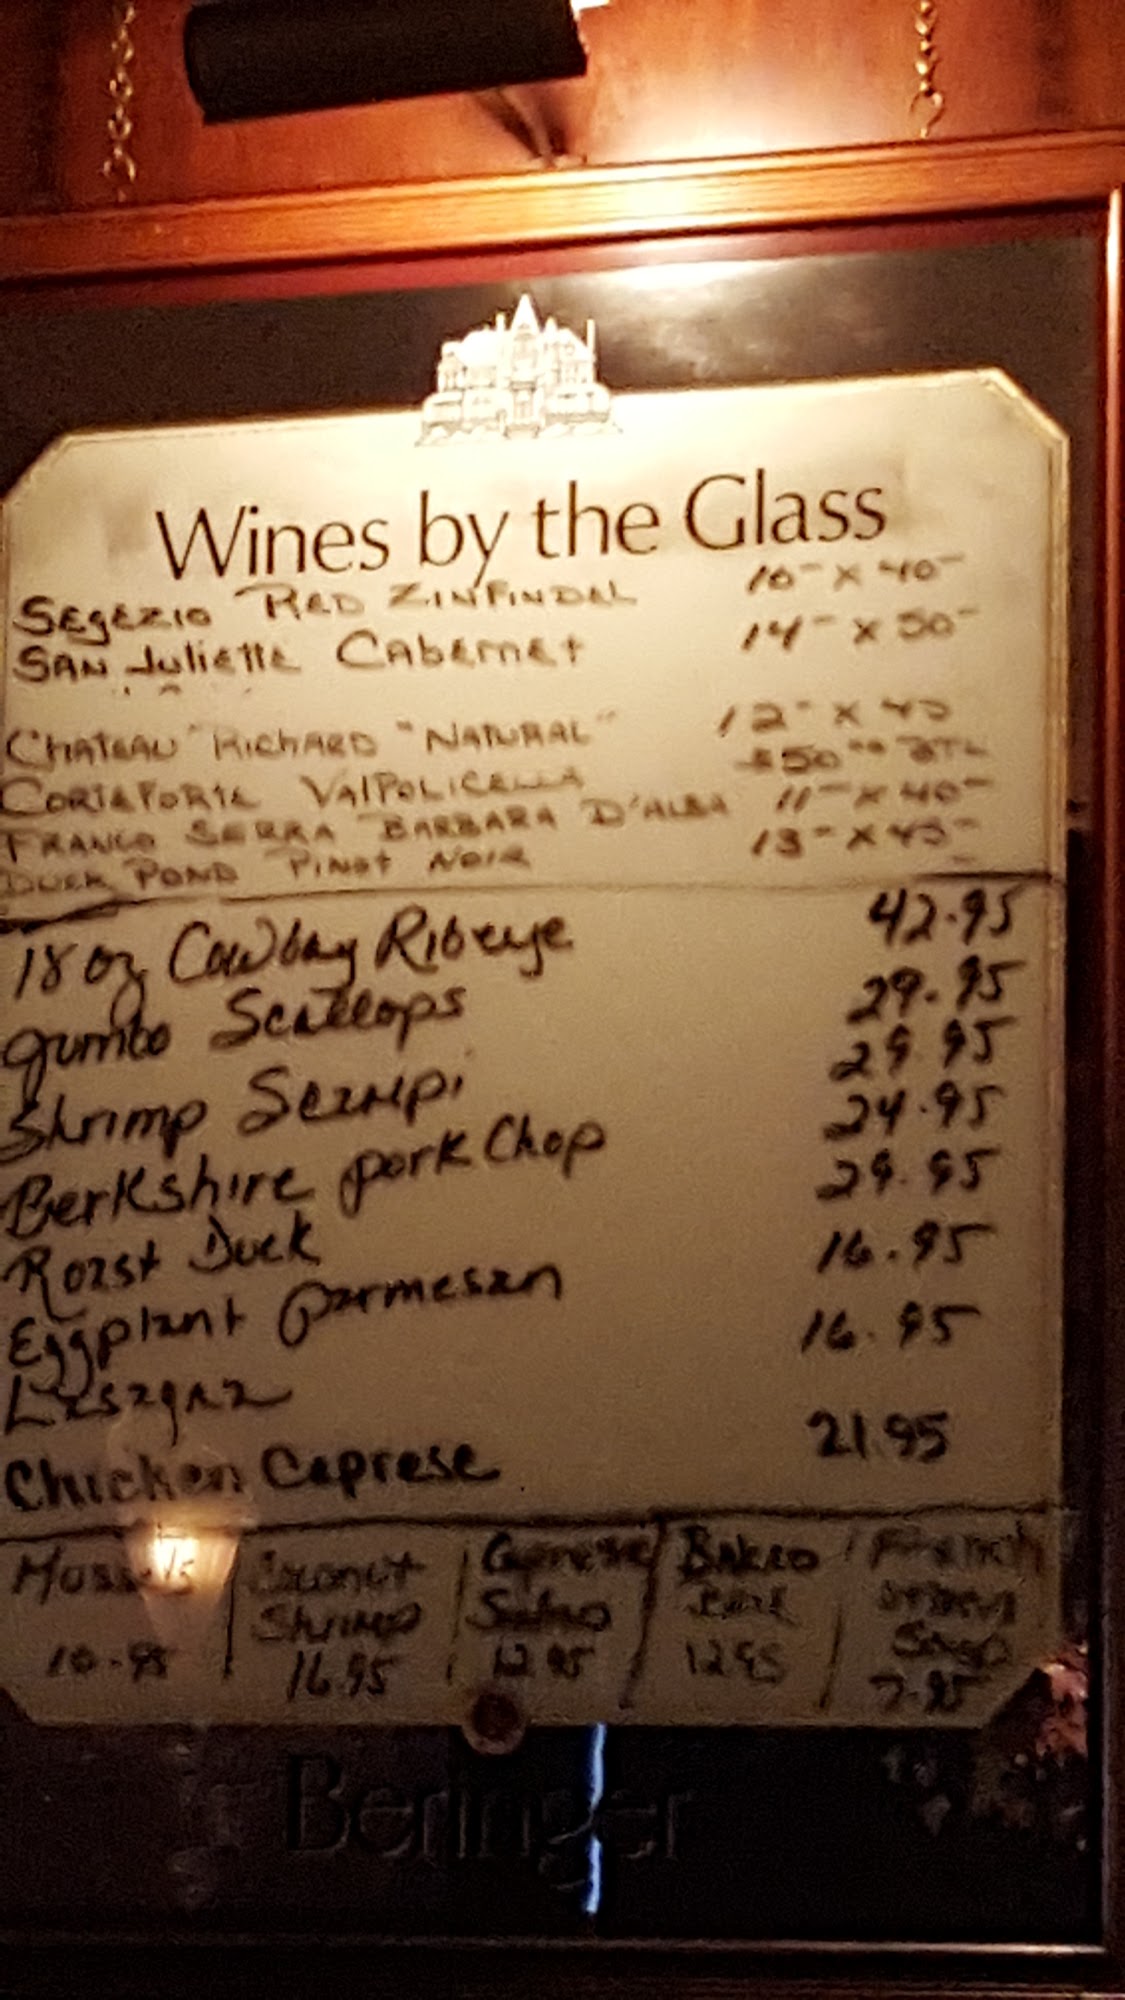 Wines by the Glass
Segezio Red Zinfindel 10- x 40-
San Juliette Cabernet 14- x 50-
Chateau "Richard "Natural" 12- x 45
Corteforte Valpolicella $50.00 BTL
Franco Serra Barbara D'Alba 11- x 40-
Duck Pond Pinot Noir 13- x 45-
18 oz Cowboy Ribeye 42.95
Jumbo Scallops 29.95
Shrimp Scampi 29.95
Berkshire pork Chop 24.95
Roast Duck 29.95
Eggplant parmesan 16.95
Lasagna 16.95
Chicken Caprese 21.95
Mussels 10.95
Coconut Shrimp 16.95
Caprese Salad 12.95
Baked 12.95
French Onion Soup 7.95
Beringer